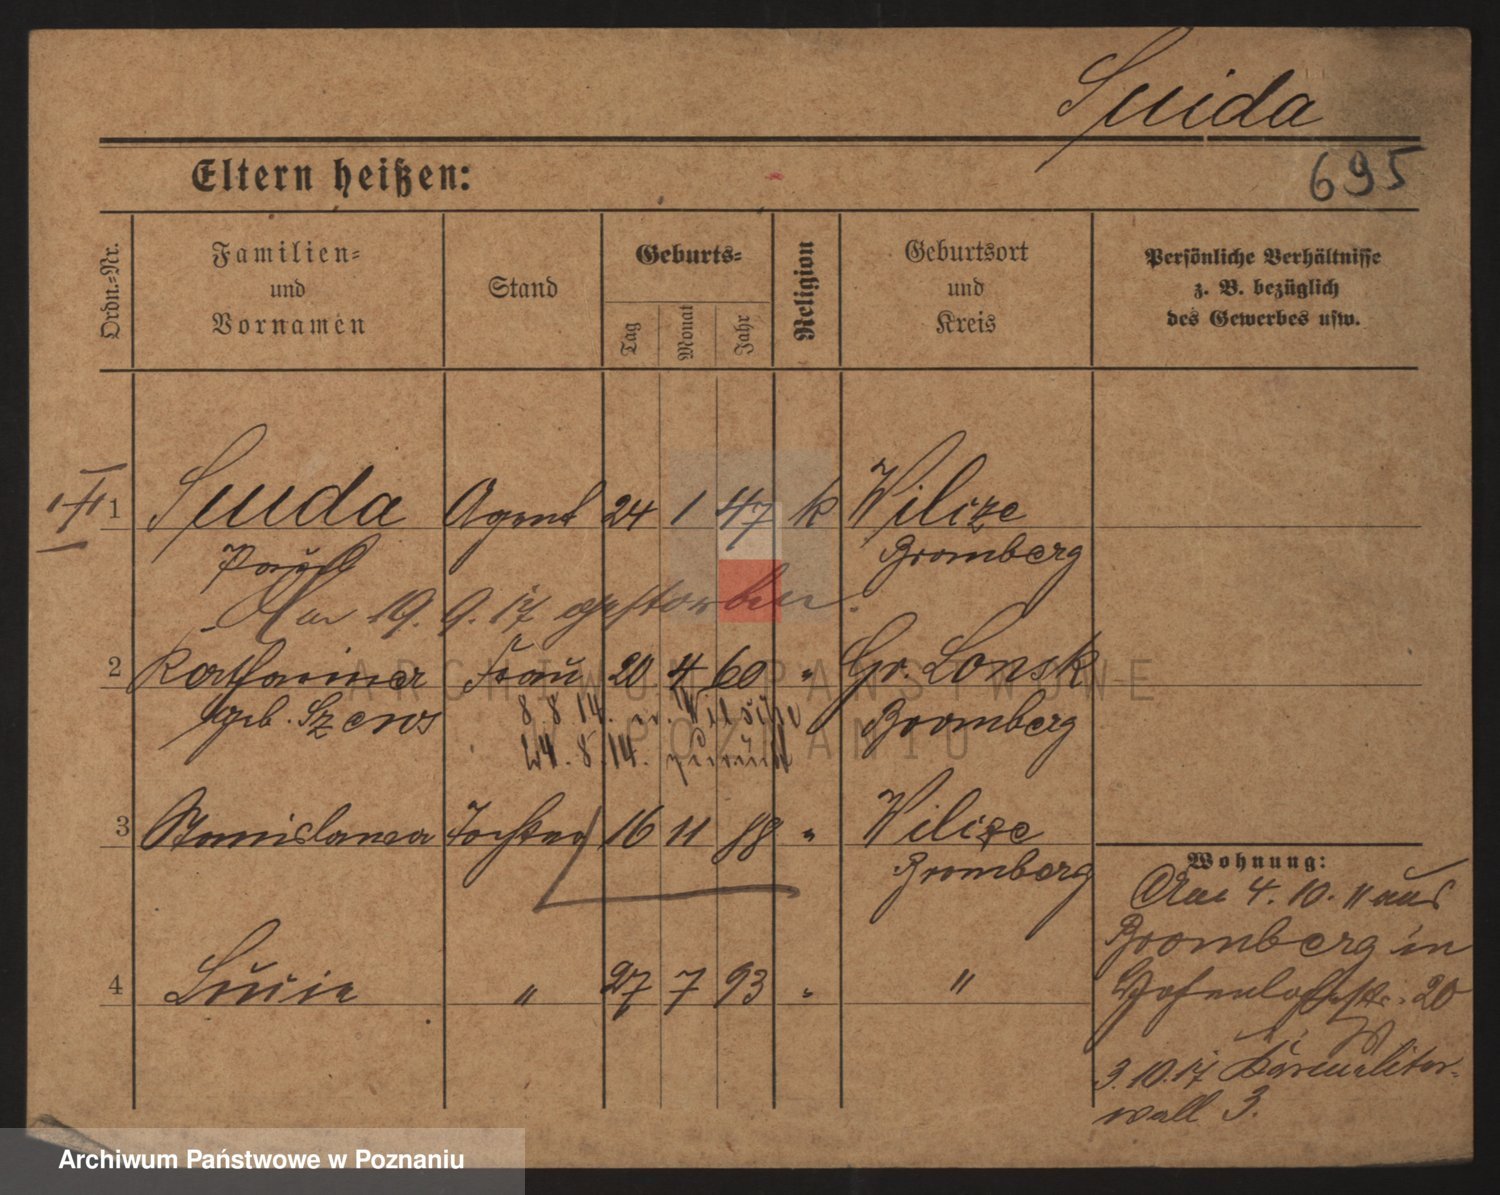 Suida
695
Eltern heißen:
Ordn.-Nr.
Familien-
und
Vornamen
Stand
Geburts-
Tag
Monat
Jahr
Religion
Geburtsort
und
Kreis
Persönliche Verhältnisse
z. B. bezüglich
des Gewerbes usw.
1 Suida Agent 24 1 47 k Wilcze
Paul Bromberg
Am 19. 9. 17 gestorben.
2 Katharina Frau 20 4 60 " Gr. Lonsk
geb. Szews Bromberg
8. 8. 14. n. Wilcze
24. 8. 14. zurück
3 Stanislawa Tochter 16 11 88 " Wilcze
Bromberg
4 Lucie " 27 7 93 " "
Wohnung:
Am 4. 10. 11 aus
Bromberg in
Hohenlohestr. 20
3. 10. 17 Karmeliter-
wall 3.
ARCHIWUM PAŃSTWOWE
W POZNANIU
Archiwum Państwowe w Poznaniu